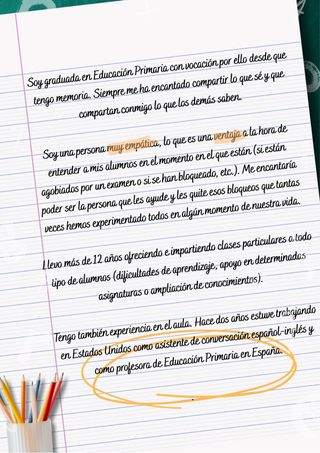 Soy graduada en Educación Primaria con vocación por ello desde que
tengo memoria. Siempre me ha encantado compartir lo que sé y que
compartan conmigo lo que los demás saben.
Soy una persona muy empática, lo que es una ventaja a la hora de
entender a mis alumnos en el momento en el que están (si están
agobiados por un examen o si se han bloqueado, etc.). Me encantaría
poder ser la persona que les ayude y les quite esos bloqueos que tantas
veces hemos experimentado todos en algún momento de nuestra vida.
Llevo más de 12 años ofreciendo e impartiendo clases particulares a todo
tipo de alumnos (dificultades de aprendizaje, apoyo en determinadas
asignaturas o ampliación de conocimientos).
Tengo también experiencia en el aula. Hace dos años estuve trabajando
en Estados Unidos como asistente de conversación español-inglés y
como profesora de Educación Primaria en España.
.